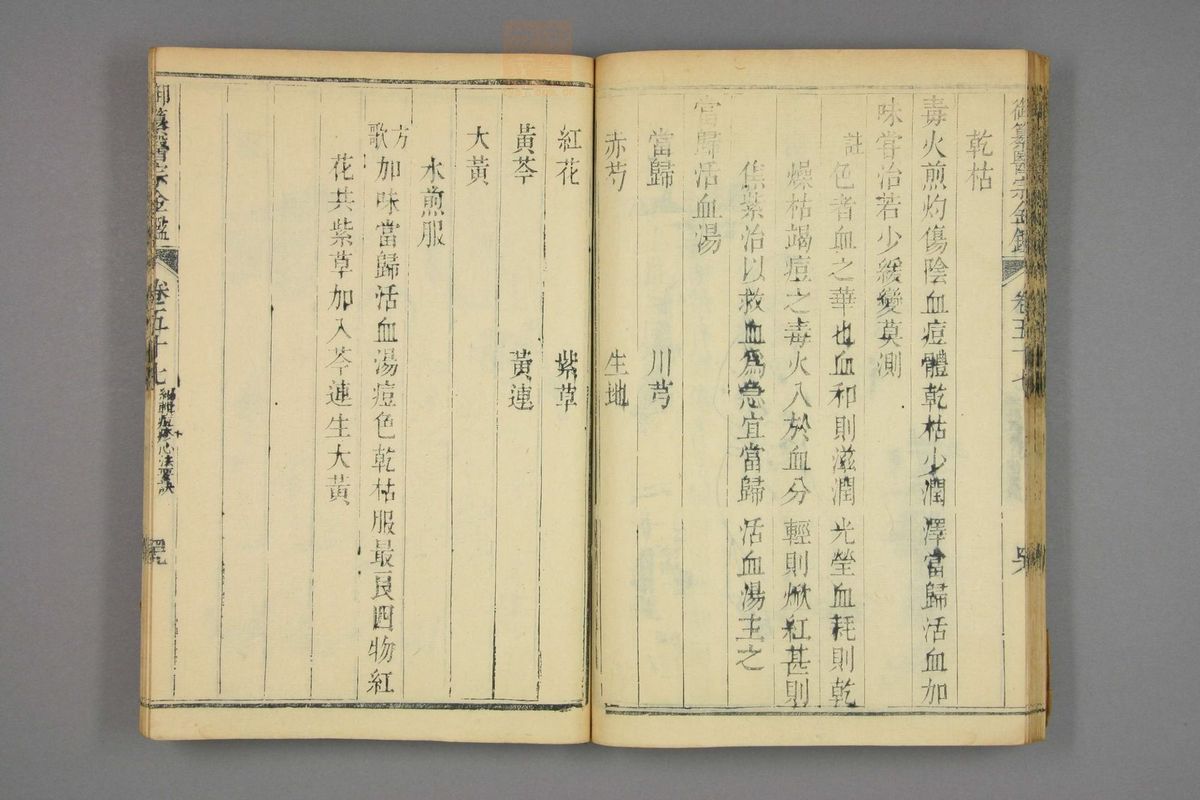 御纂醫宗金鑑 卷五十七
乾枯
毒火煎灼傷陰血痘體乾枯少潤澤當歸活血加
味嘗治若少緩變莫測
註 色者血之華也血和則滋潤光瑩血耗則乾
燥枯竭痘之毒火入於血分輕則焮紅甚則
焦紫治以救血為急宜當歸活血湯主之
當歸活血湯
當歸 川芎
赤芍 生地
紅花 紫草
黃芩 黃連
大黃
水煎服
方歌 加味當歸活血湯痘色乾枯服最良四物紅
花共紫草加入芩連生大黃
御纂醫宗金鑑 卷五十七 編輯痘疹心法要訣